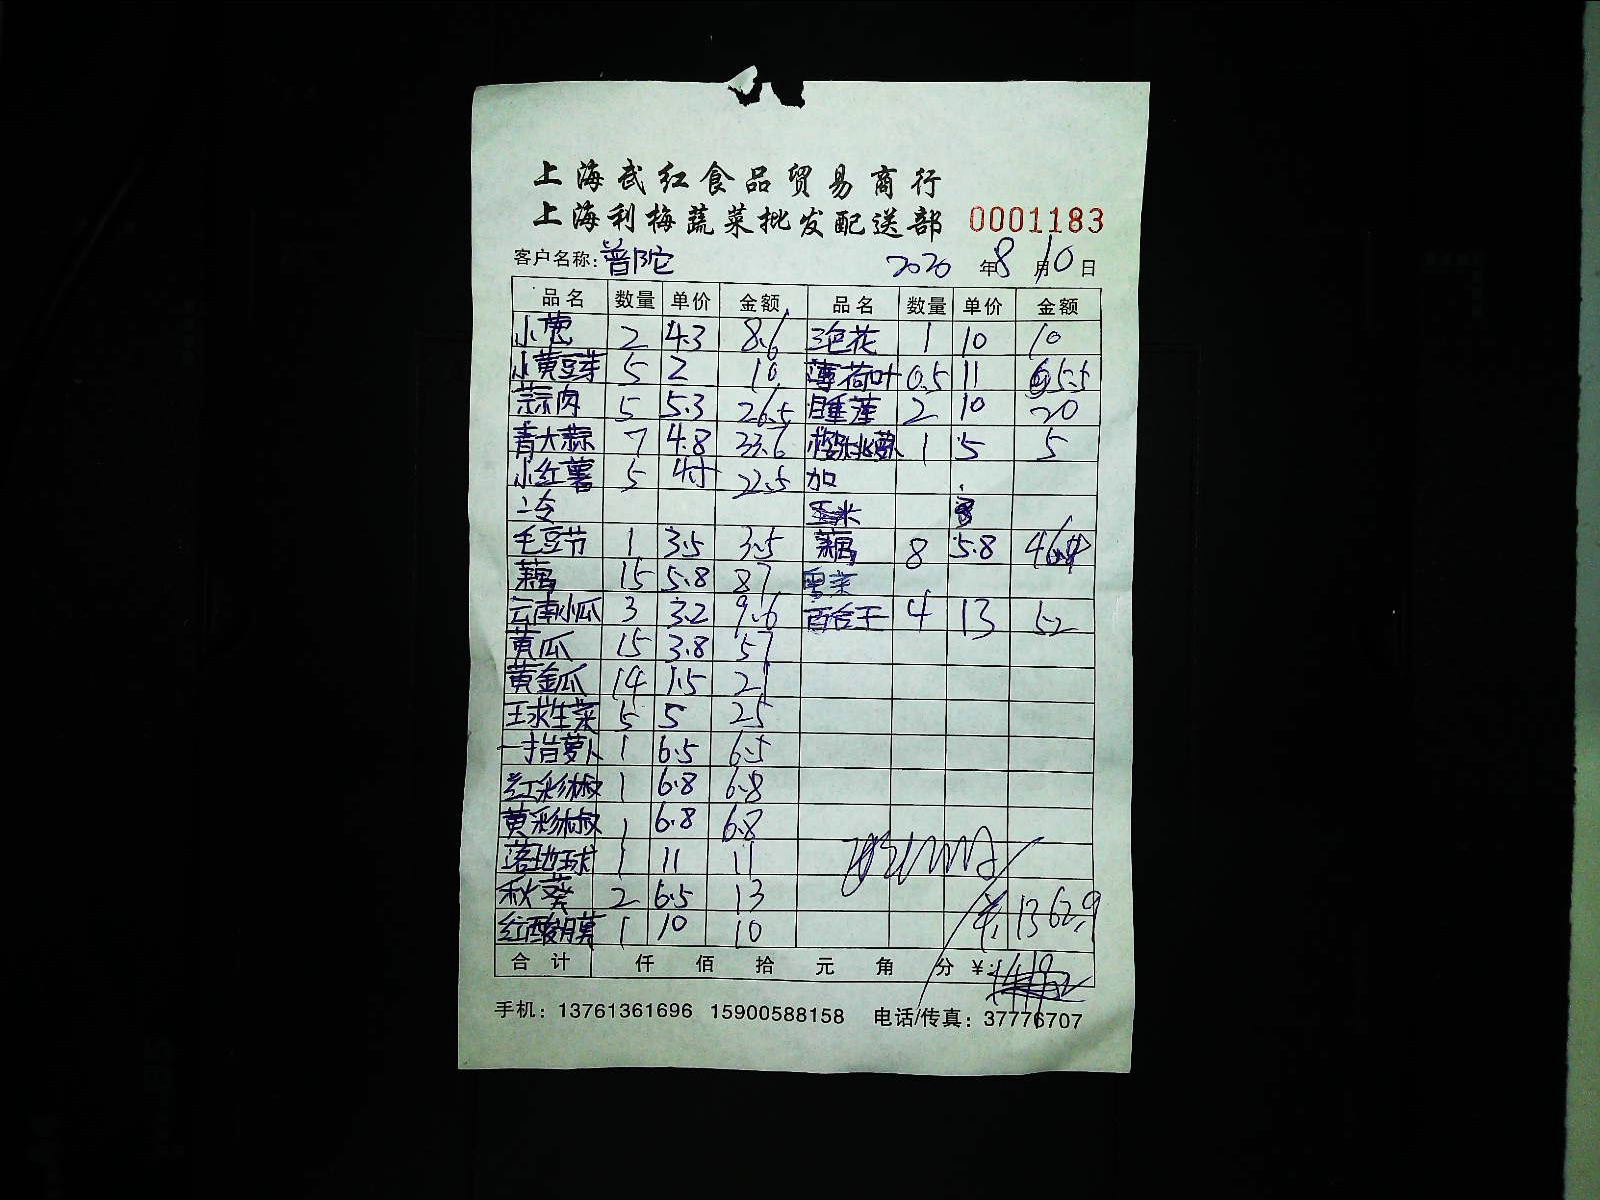 上海武红食品贸易商行
上海利梅蔬菜批发配送部 0001183
客户名称: 普陀 2020 年 8 月 10 日
品名 数量 单价 金额 品名 数量 单价 金额
小葱 2 4.3 8.6 三色花 1 10 10
小黄豆芽 5 2 10 薄荷叶 0.5 11 5.5
蒜肉 5 5.3 26.5 睡莲 2 10 20
青大蒜 7 4.8 33.6 樱桃萝卜 1 5 5
小红薯 5 4.5 22.5 加
冷 玉米
毛豆节 1 3.5 3.5 藕 8 5.8 46.4
藕 15 5.8 87
云南小瓜 3 3.2 9.6 百合王 4 13 52
黄瓜 15 3.8 57
黄金瓜 14 1.5 21
王求生菜 5 5 25
一指萝卜 1 6.5 6.5
红彩椒 1 6.8 6.8
黄彩椒 1 6.8 6.8
落地球 1 11 11
秋葵 2 6.5 13 ¥1362.9
红酸膜 1 10 10
合计 仟 佰 拾 元 角 分 ¥:
手机: 13761361696 15900588158 电话/传真: 37776707